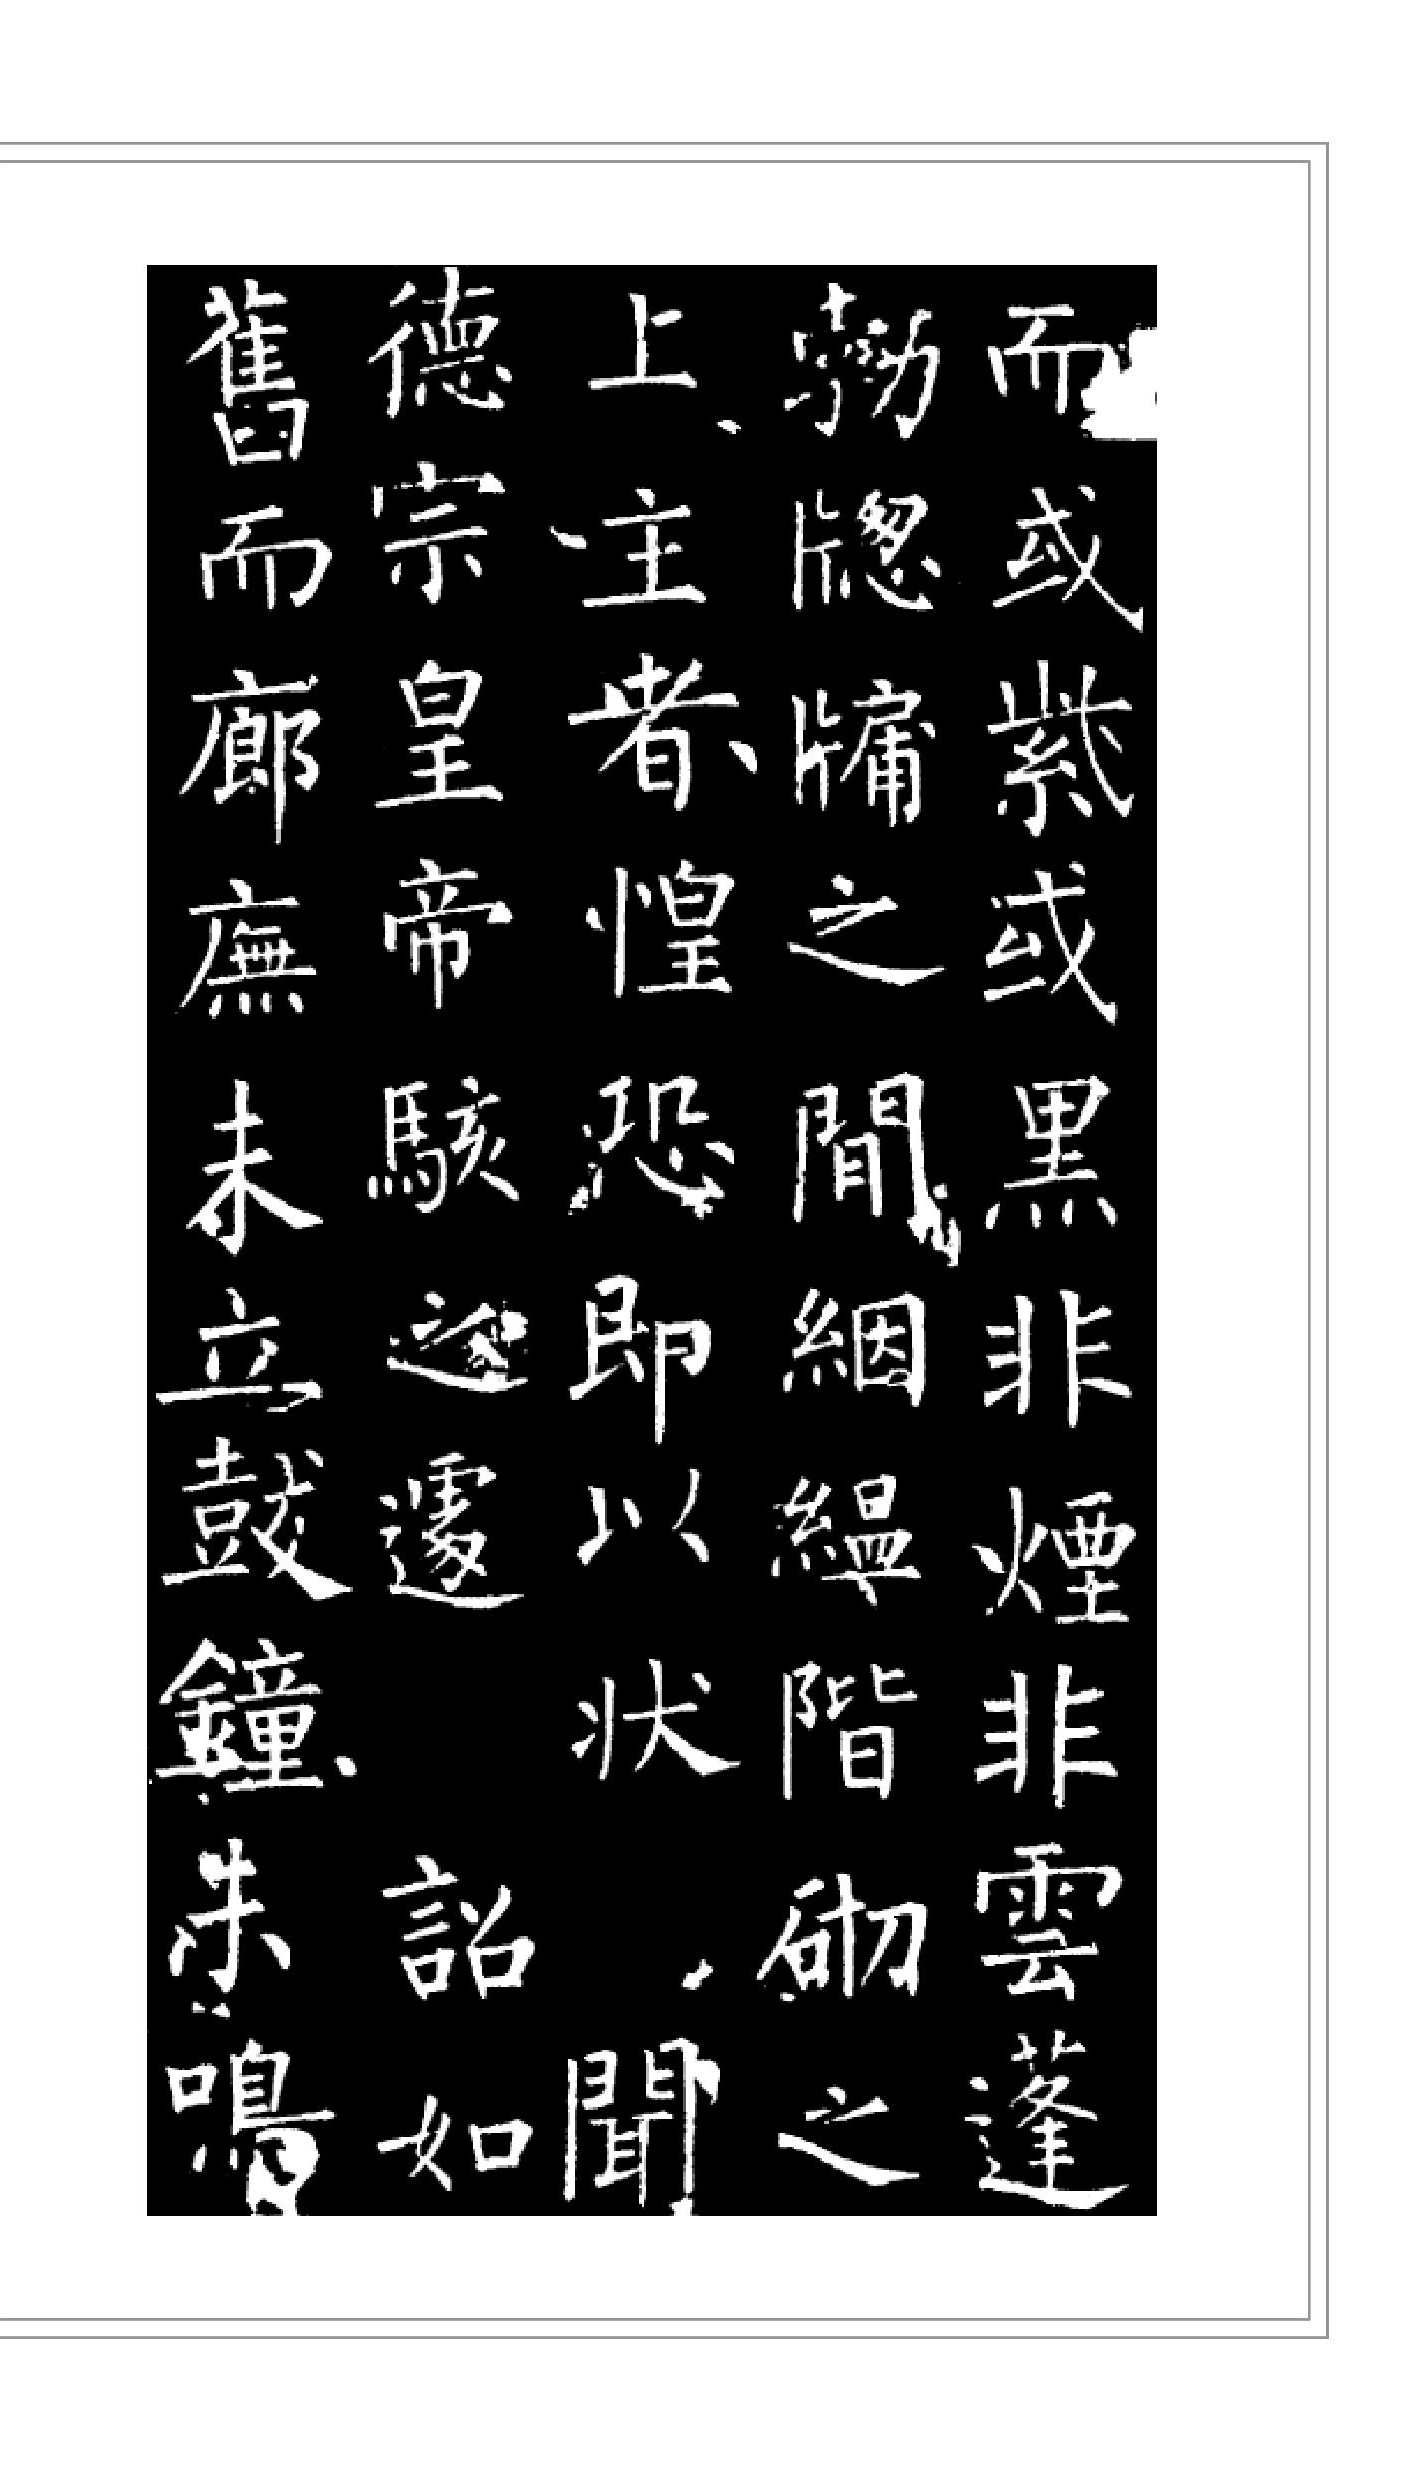 而或紫或黑非煙非雲蓬
勃牕牗之間絪縕階砌之
上主者惶恐即以状聞
德宗皇帝駭之遽詔如
舊而廊廡未立鼓鐘未鳴